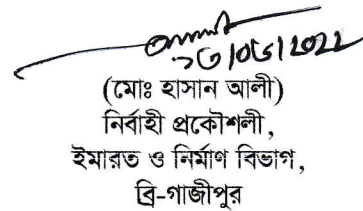 ১৩/০৬/২০২২
(মোঃ হাসান আলী)
নির্বাহী প্রকৌশলী,
ইমারত ও নির্মাণ বিভাগ,
ব্রি-গাজীপুর